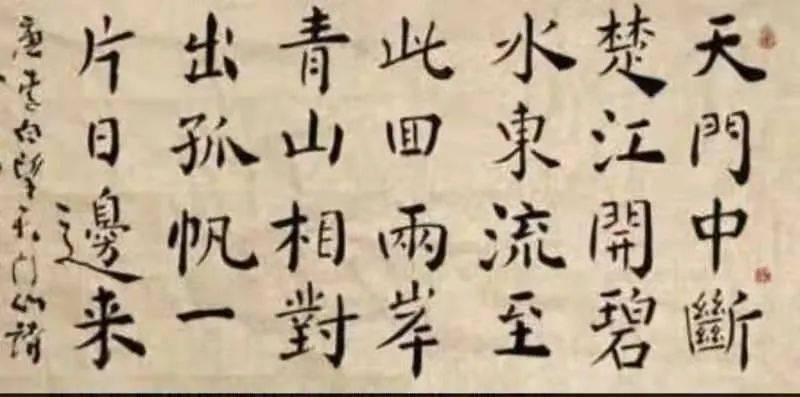 天門中斷
楚江開碧
水東流至
此回兩岸
青山相對
出孤帆一
片日邊来
唐李白望天门山詩